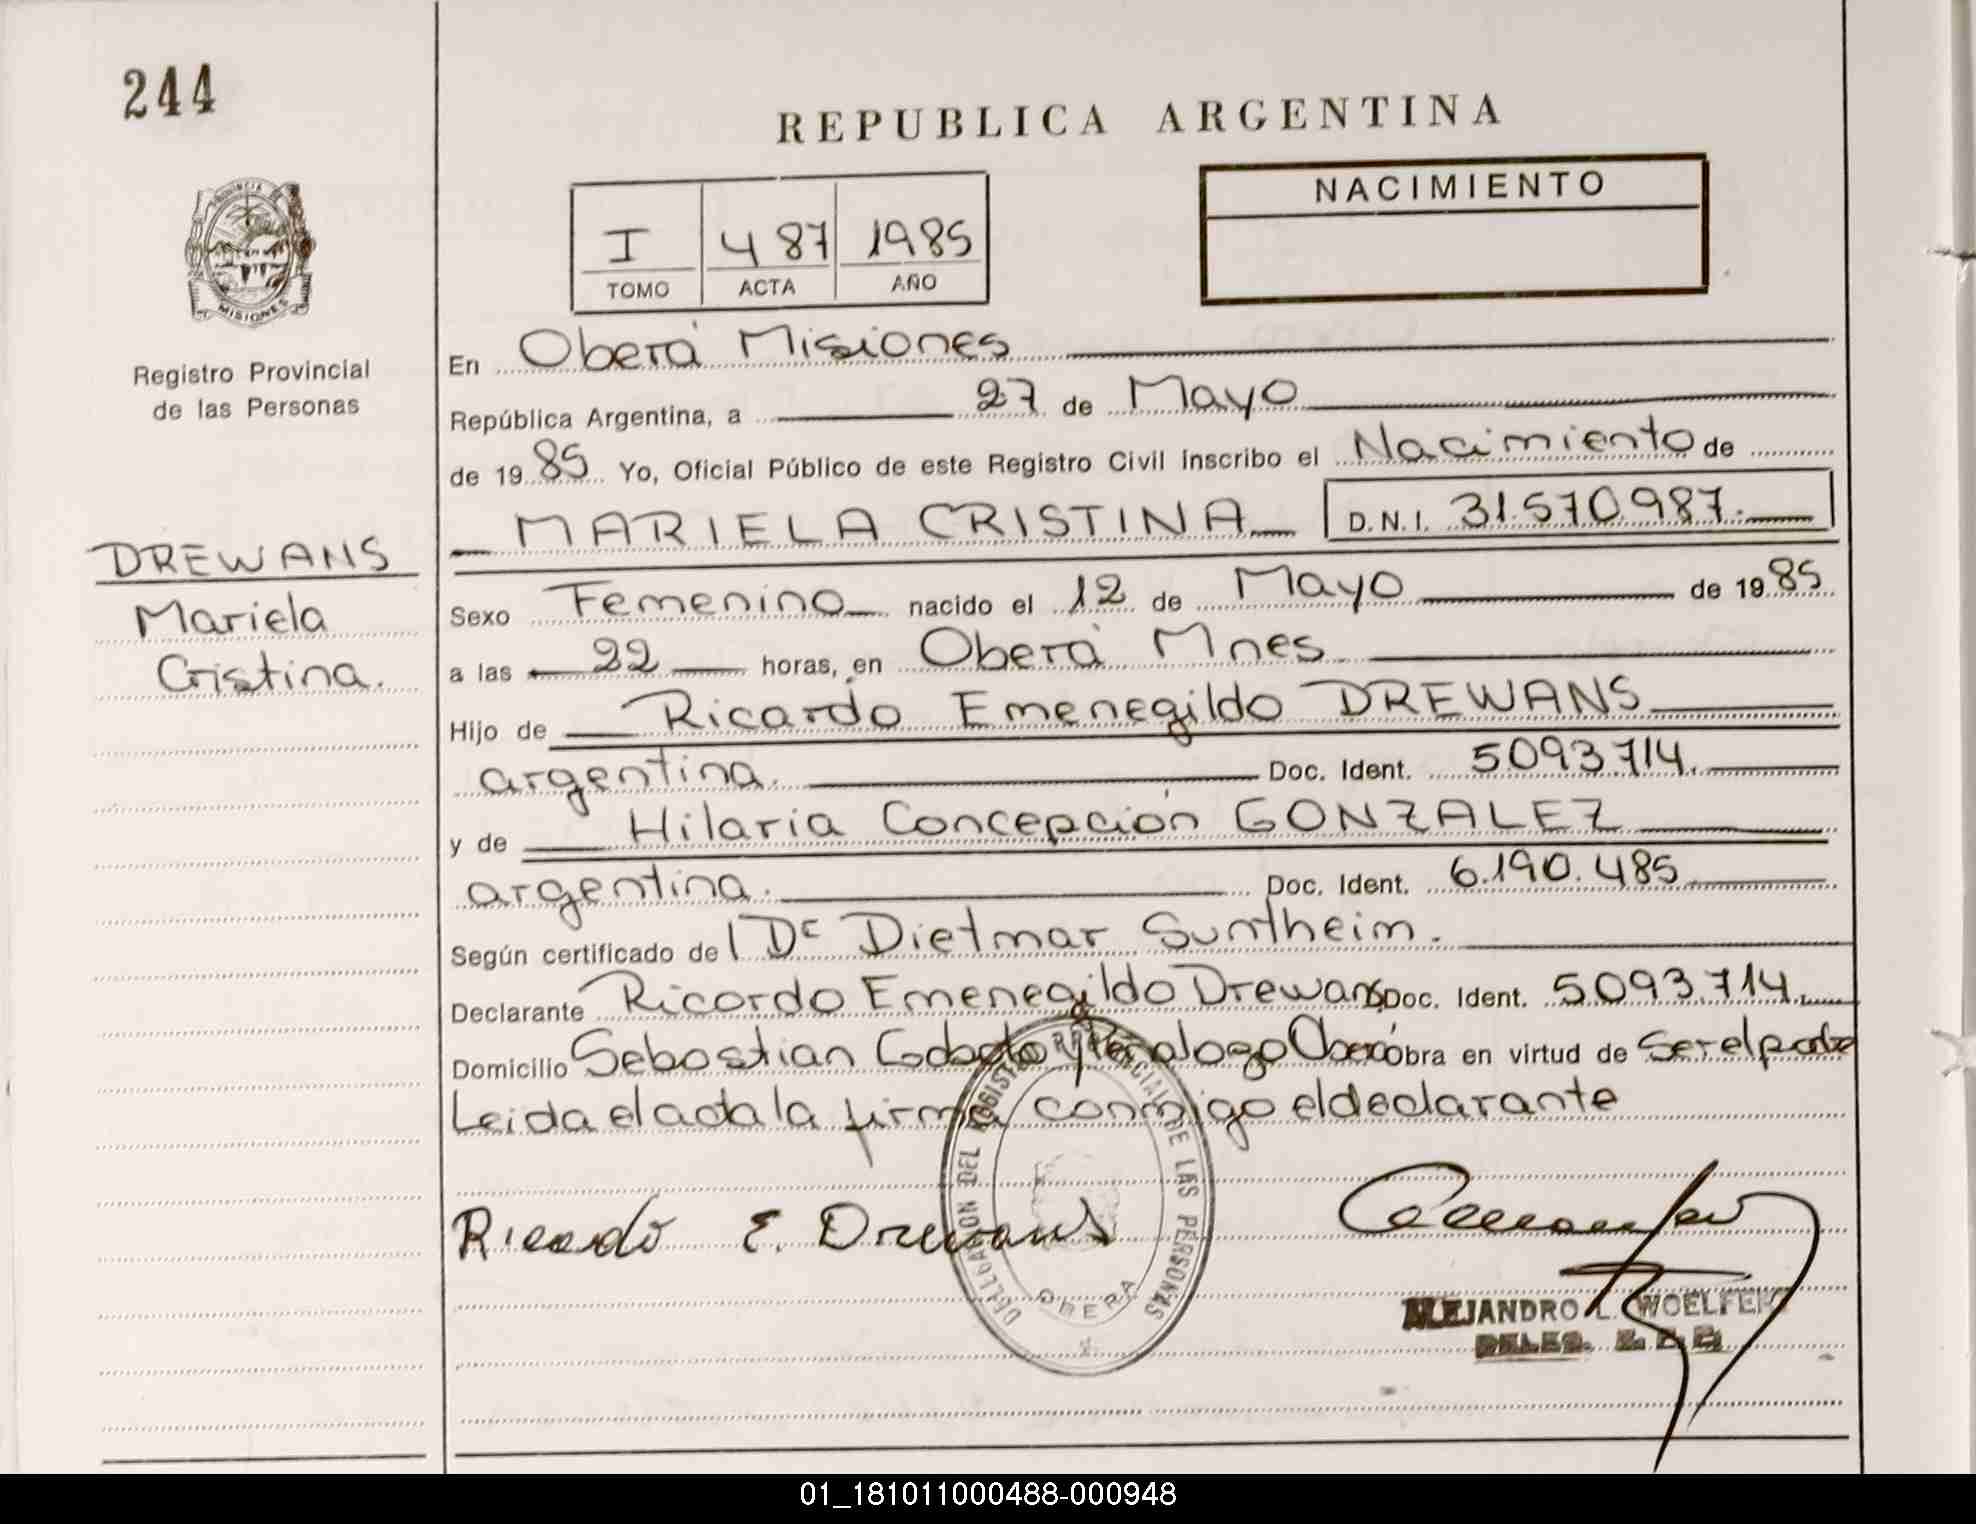 244
REPUBLICA ARGENTINA
NACIMIENTO
I 487 1985
TOMO ACTA AÑO
PROVINCIA DE
MISIONES
Registro Provincial
de las Personas
DREWANS
Mariela
Cristina.
En Oberá Misiones
República Argentina, a 27 de Mayo
de 1985 Yo, Oficial Público de este Registro Civil inscribo el Nacimiento de
MARIELA CRISTINA D.N.I. 31.570.987.
Sexo Femenino nacido el 12 de Mayo de 1985
a las 22 horas, en Oberá Mnes
Hijo de Ricardo Emenegildo DREWANS
argentina. Doc. Ident. 5093.714.
y de Hilaria Concepción GONZALEZ
argentina. Doc. Ident. 6.190.485
Según certificado de Dietmar Suntheim.
Declarante Ricardo Emenegildo Drewans Doc. Ident. 5.093.714.
Domicilio Sebastian Oberá obra en virtud de Ser el padre
Leida el acta la firma conmigo el declarante
Ricardo E. Drewans
DELEGACION DEL REGISTRO PROVINCIAL DE LAS PERSONAS
OBERA
ALEJANDRO L. WOELFERT
01_181011000488-000948